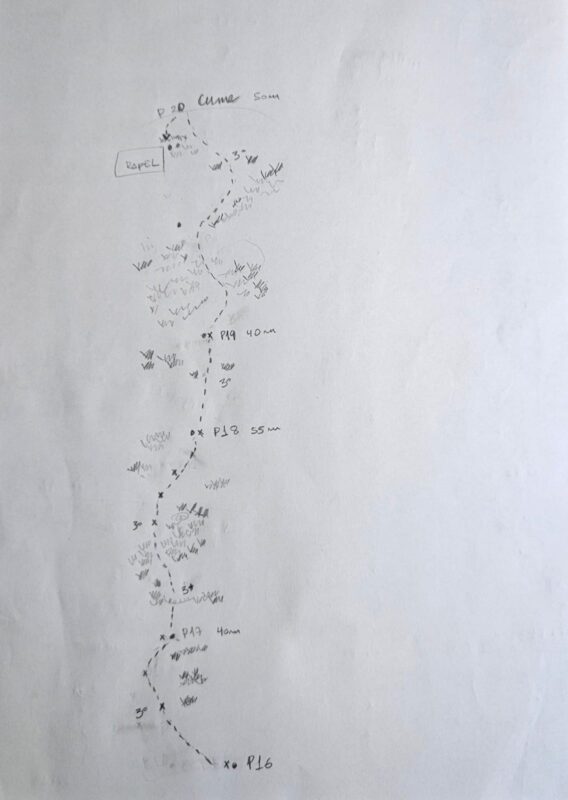 P20 Cume 50m
RAPEL
3º
P19 40m
3º
P18 55m
3º
3º
P17 40m
3º
P16